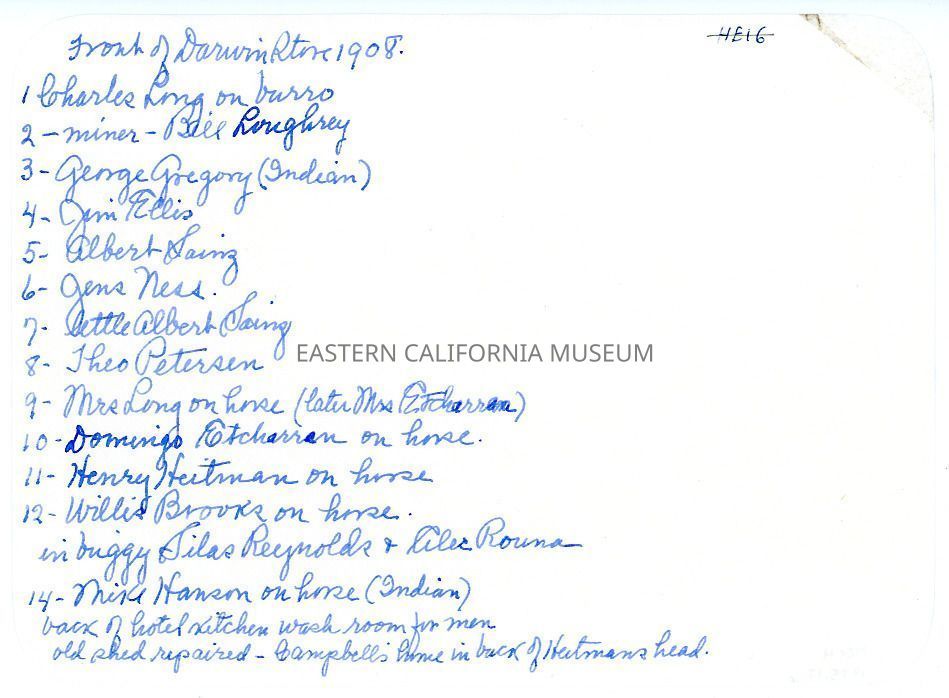 HE16
Front of Darwin Store 1908.
1 Charles Long on burro
2 - miner - Bill Loughrey
3 - George Gregory (Indian)
4 - Jim Ellis
5 - Albert Sainz
6 - Jens Ness.
7 - little Albert Sainz
EASTERN CALIFORNIA MUSEUM
8 - Theo Petersen
9 - Mrs Long on horse (later Mrs Etcharran)
10 - Domingo Etcharran on horse.
11 - Henry Heitman on horse
12 - Willis Brooks on horse.
in buggy Silas Reynolds & Alec Rouna
14 - Mike Hanson on horse (Indian)
back of hotel kitchen wash room for men
old shed repaired - Campbells home in back of Heitmans head.